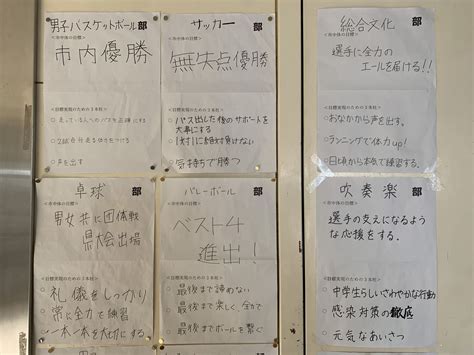 男子バスケットボール 部
<市中体の目標>
市内優勝
<目標実現のための3本柱>
○走っている人へのパスを正確にする
○声を出す
サッカー 部
<市中体の目標>
無失点優勝
<目標実現のための3本柱>
○パス出した後のサポートを大事にする
○1対1に絶対負けない
○気持ちで勝つ
総合文化 部
<市中体の目標>
選手に全力の
エールを届ける!!
<目標実現のための3本柱>
○おなかから声を出す。
○ランニングで体力up!
○日頃から本気で練習する。
卓球 部
<市中体の目標>
男女共に団体戦
県大会出場
<目標実現のための3本柱>
○礼儀をしっかり
○常に全力で練習
○一本一本を大切にする
バレーボール 部
<市中体の目標>
ベスト4
進出!
<目標実現のための3本柱>
○最後まで諦めない
○最後まで楽しく、全力で
○最後までボールを繋ぐ
吹奏楽 部
<市中体の目標>
選手の支えになるよう
な応援をする.
<目標実現のための3本柱>
○中学生らしいさわやかな行動
○感染対策の徹底
○元気なあいさつ